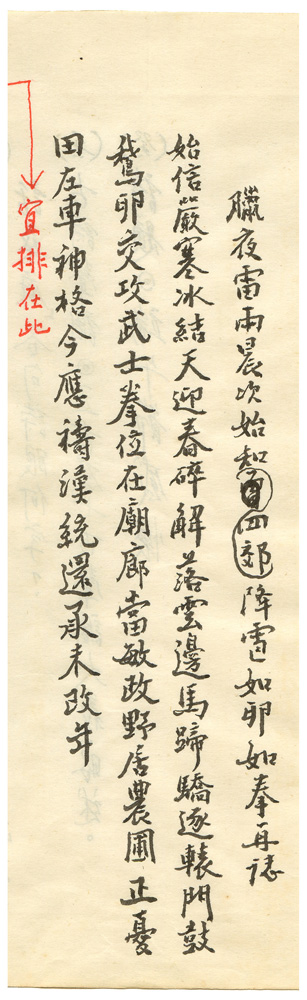 臘夜雷雨晨次始知四郊降雹如卵如拳再誌
始信嚴寒冰結天迎春碎解落雲邊馬蹄驕逐轅門鼓
鵞卵交攻武士拳位在廟廊當敏政野居農圃正憂
田左車神格今應禱漢統還承未改年
宜排在此